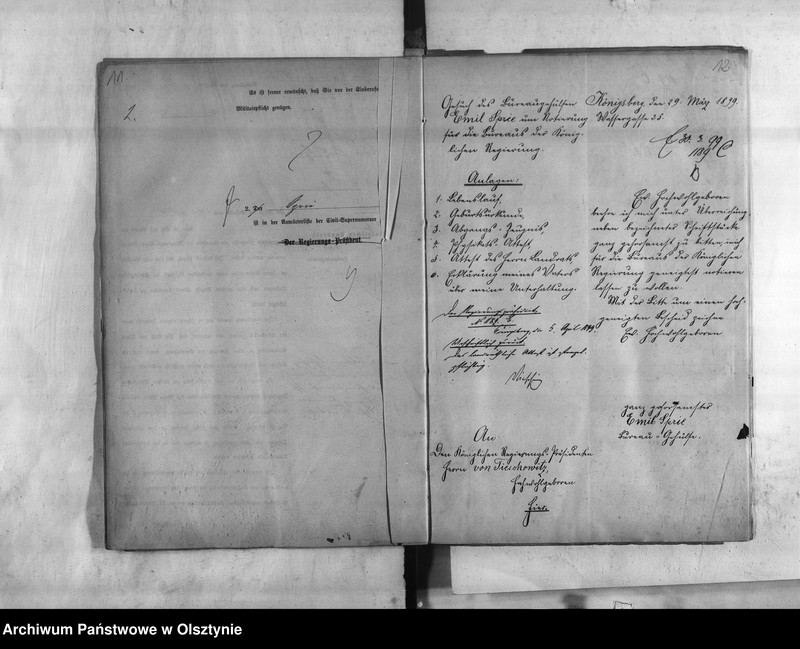 11.
1.
Es ist ferner erwünscht, daß Sie vor der Einberufu
Militairpflicht genügen.
2. pp. Sprie
ist in der Anwärterliste der Civil-Supernumerare
Der Regierungs-Präsident
12
Gesuch des Büreaugehülfen
Emil Sprie um Notierung
für die Büreaus der König-
lichen Regierung.
Königsberg, den 29. März 1899.
Wassergasse 35.
E 30. 3. 99
Anlagen:
1. Lebenslauf,
2. Geburtsurkunde,
3. Abgangs-Zeugnis,
4. Physikats-Attest,
5. Attest des Herrn Landrats
6. Erklärung meines Vaters
über meine Unterhaltung.
Der Regierungspräsident
Königsberg, den 5. April 1899.
Ew. Hochwohlgeboren
beehre ich mich unter Überreichung
neben bezeichneter Schriftstücke
ganz gehorsamst zu bitten, mich
für die Büreaus der Königlichen
Regierung geneigtest notieren
lassen zu wollen.
Mit der Bitte um einen hoch-
geneigten Bescheid zeichne
Ew. Hochwohlgeboren
ganz gehorsamster
Emil Sprie
Büreau-Gehülfe.
An
Den Königlichen Regierungs-Präsidenten
Herrn von Tieschowitz,
Hochwohlgeboren
Hier.
Archiwum Państwowe w Olsztynie